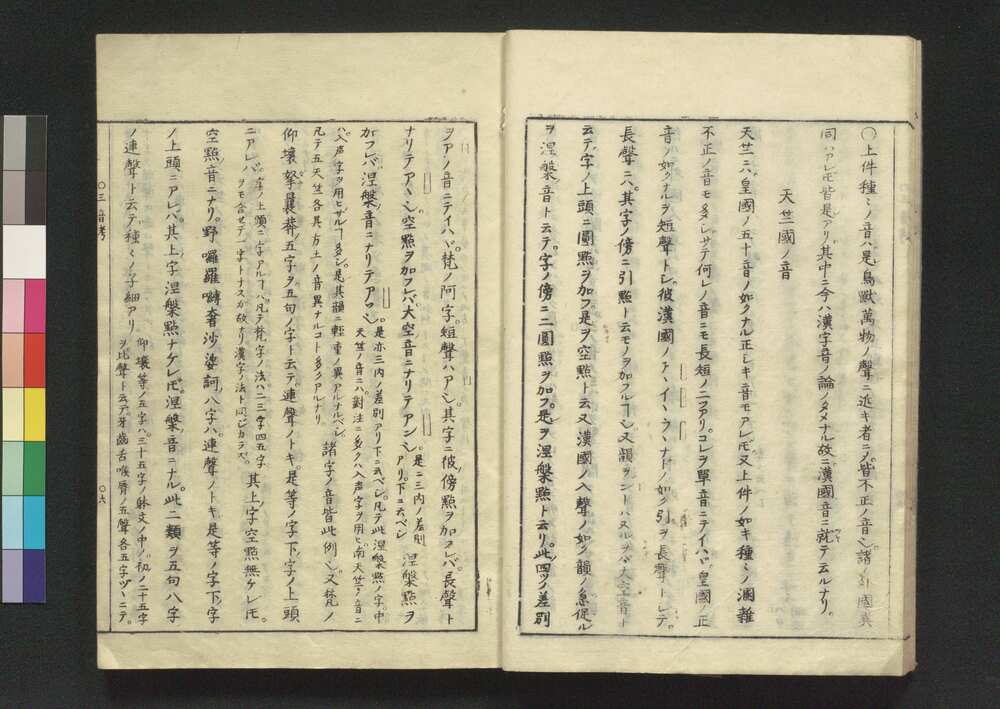 〇上件種々ノ音ハ是鳥獣萬物ノ聲ニ近キ者ニノ皆不正ノ音也諸ノ外國異
同ハアレ𪜈皆是アリ其中ニ今ハ漢字音ノ論ノタメナル故ニ漢國音ニ就テ云ルナリ
天竺國ノ音
天竺ニハ皇國ノ五十音ノ如クナル正シキ音モアレ𪜈又上件ノ如キ種々ノ溷雜
不正ノ音モ多シサテ何レノ音ニモ長短ノ二アリコレヲ單音ニテイハヾ皇國ノ正
音ノ如クナルヲ短聲トシ彼漢國ノアヽイヽウヽナドノ如ク引ヲ長聲トシテ
長聲ニハ其字ノ傍ニ引點ト云モノヲ加フルヿ也又韻ヲントハヌルヲバ大空音ト
云テ字ノ上頭ニ圓點ヲ加フ是ヲ空點ト云又漢國ノ入聲ノ如ク韻ノ急促ル
ヲ涅槃音ト云テ字ノ傍ニ二圓點ヲ加フ是ヲ涅槃點ト云リ此四ツノ差別
ヲアノ音ニテイハヾ梵ノ阿字短聲ハア也其字ニ彼傍點ヲ加フレバ長聲ト
ナリテアヽ也空點ヲ加フレバ大空音ニナリテアン也是ニ三内ノ差別アリ下ニ云ベシ涅槃點ヲ
加フレバ涅槃音ニナリテアッ也是亦三内ノ差別アリ下ニ云ベシ凡テ此涅槃點ノ字中天竺ノ音ニハ對注ニ多クハ入聲字ヲ用ヒ南天竺ノ音ニ
ハ入聲字ヲ用ヒザルヿ多シ是其韻ニ輕重ノ異アルナルベシ凡テ五天竺各其方土ノ音異ナルコト多クアルナリ諸字ノ音皆此例也又梵ノ
仰壤拏曩莽五字ヲ五句ノ字ト云テ連聲ノトキ是等ノ字下字ノ上頭
ニアレバ字ノ上頭ニ字アルヿハ凡テ梵字ノ法ハ二三字四五字ヲモ合セテ一字トナスガ故ナリ漢字ノ法ト同ジカラズ其上字空點無ケレ𪜈
空點音ニナリ野囉羅嚩奢沙娑訶八字ハ連聲ノトキ是等ノ字下字
ノ上頭ニアレバ其上字涅槃點ナケレ𪜈涅槃音ニナル此二類ヲ五句八字
ノ連聲ト云テ種々ノ子細アリ仰壤等ノ五字ハ三十五字ノ躰文ノ中ノ初ノ二十五字ヲ比聲ト云テ牙齒舌喉脣ノ五聲各五字ヅヽニテ
〇三音考
〇六